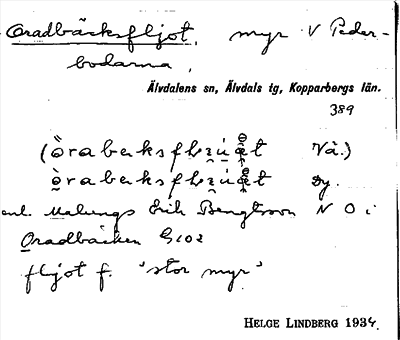 Oradbäcksfljot, myr V Peder-
bodarna,
Älvdalens sn, Älvdals tg, Kopparbergs län.
389
Vå.)
Dy.
enl. Malungs Erik Bengtsson N O i
Oradbäcken G102
fljot f. 'stor myr'
HELGE LINDBERG 1934.